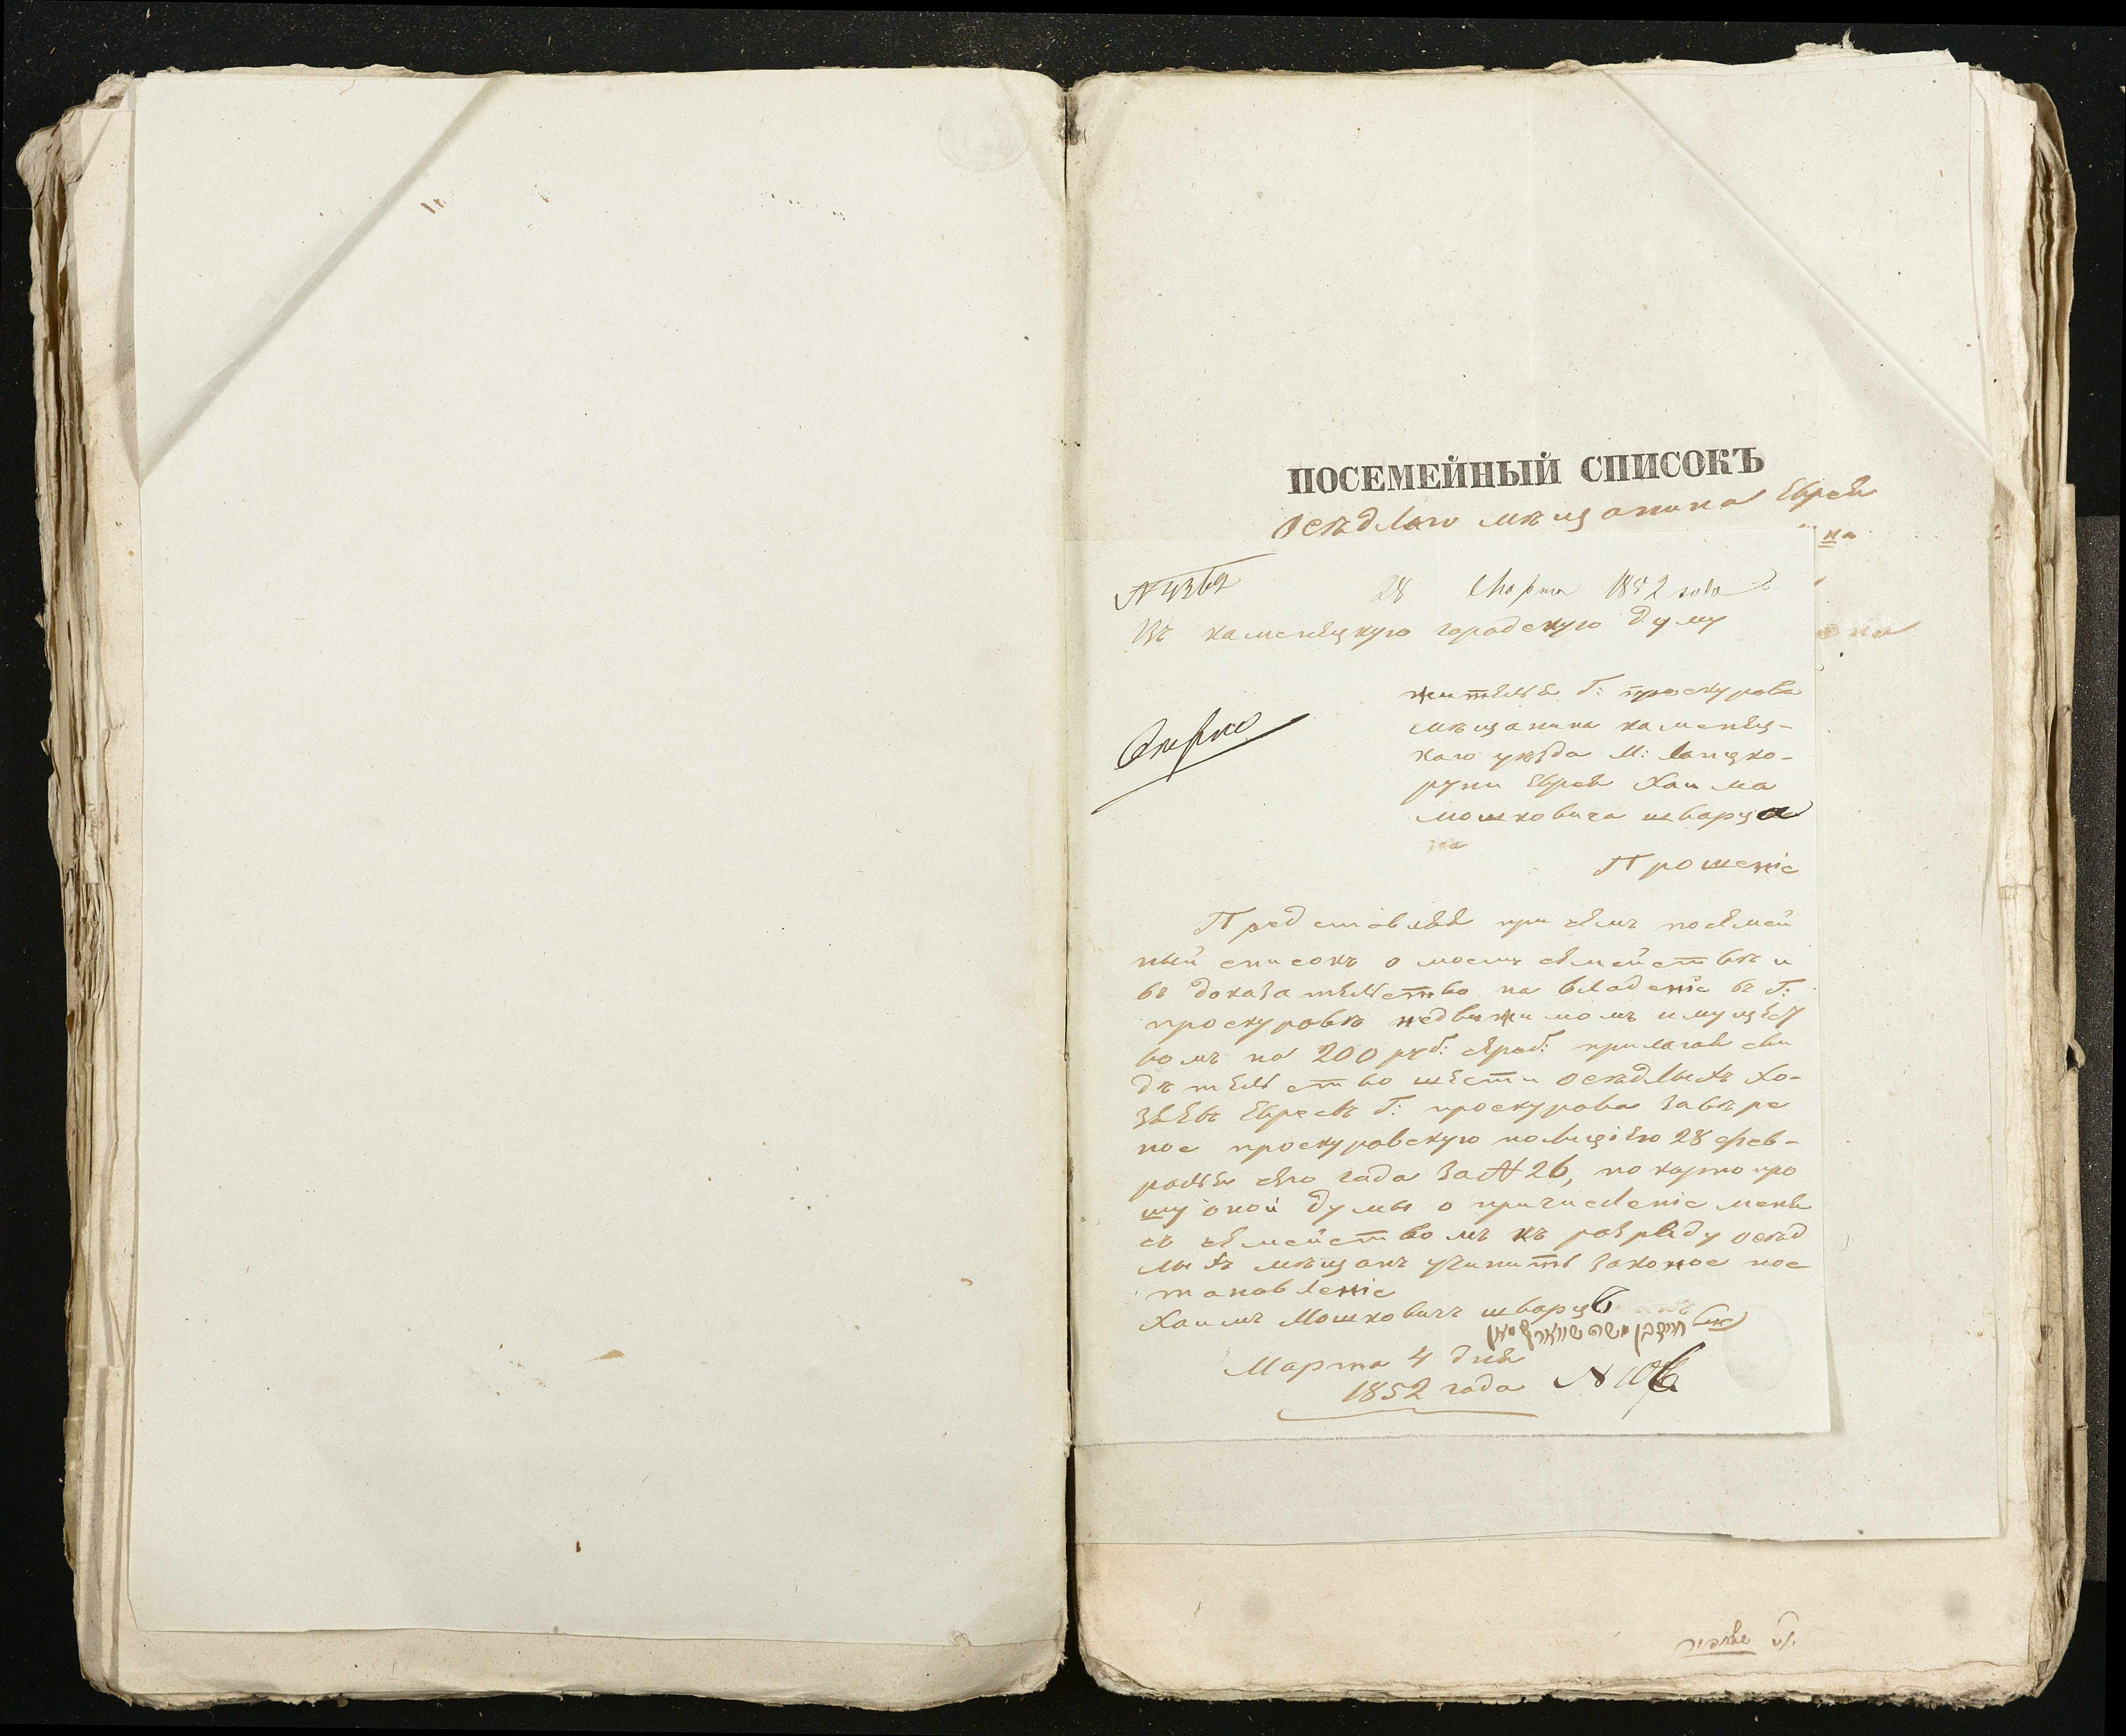 ПОСЕМЕЙНЫЙ СПИСОКЪ
осѣдлаго мѣщанина Еврея
на
№ 4362
28 Марта 1852 года
Въ каменецкую городскую думу
жителя Г: проскурова
мѣщанина каменец-
каго уѣзда М: Ланцко-
руни Еврея Хаима
Мошковича шварца
на
Прошеніе
Представляя при семъ посемей
ный списокъ о моемъ семействѣ и
въ доказательство на владеніе въ Г:
проскуровѣ недвижимомъ имущест
вомъ на 200 руб: сереб: прилагая сви
дѣтельство шести осѣдлыхъ хо-
зяевъ Евреевъ Г: проскурова завѣре
ное проскуровскую полиціею 28 фев-
раля сего года за № 26, покорно про
шу оной думы о причисленіе меня
съ семействомъ къ разряду осѣд
лыхъ мѣщанъ учинить законое пос
тановленіе
Хаимъ Мошковичъ шварцъ
חיים בן משה שווארצמאן
Марта 4 дня
1852 года № 106